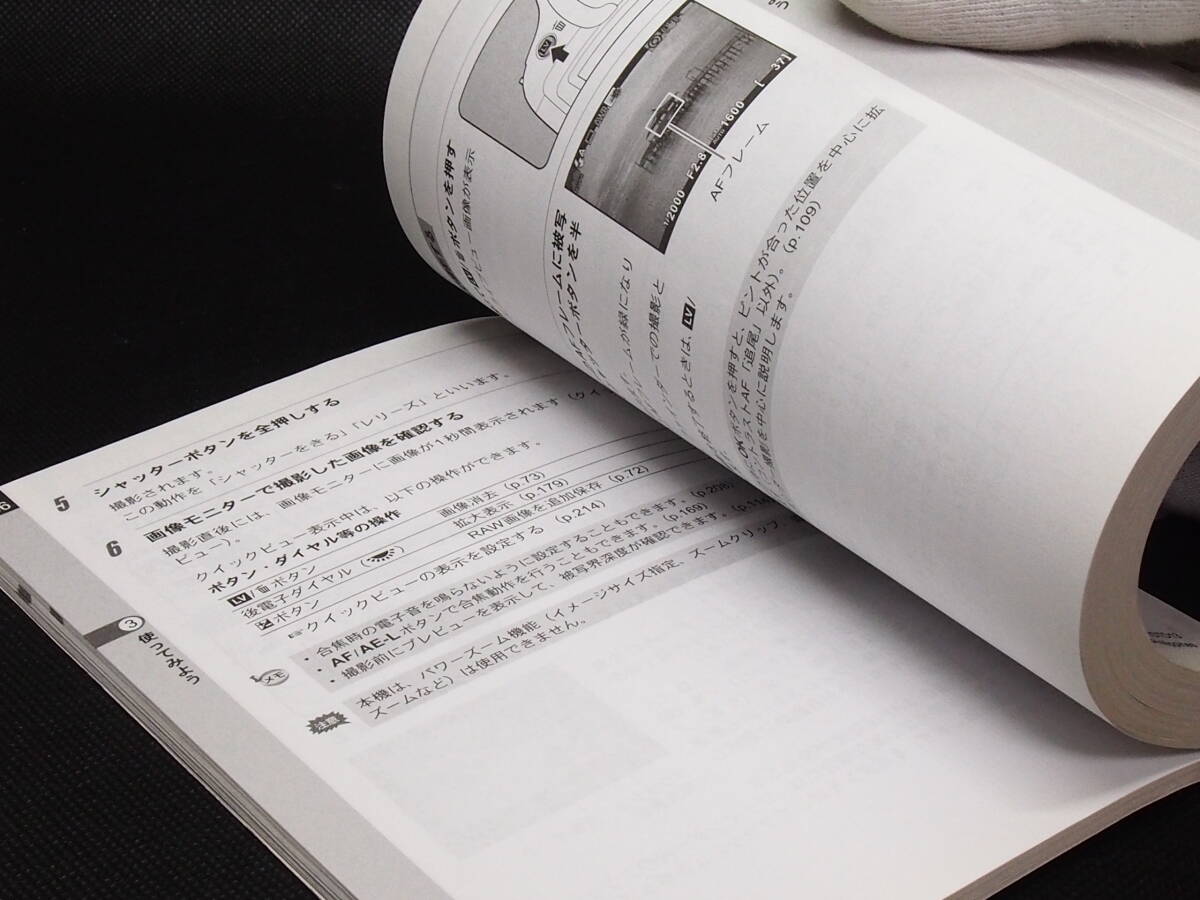 6
5
シャッターボタンを全押しする
撮影されます。
この動作を「シャッターをきる」「レリーズ」といいます。
6
画像モニターで撮影した画像を確認する
撮影直後には、画像モニターに画像が1秒間表示されます(クイ
ビュー)。
クイックビュー表示中は、以下の操作ができます。
ボタン・ダイヤル等の操作
LV/ボタン 画像消去(p.73)
後電子ダイヤル() 拡大表示(p.179)
ボタン RAW画像を追加保存(p.72)
☞クイックビューの表示を設定する (p.214)
メモ
・合焦時の電子音を鳴らないように設定することもできます。(p.208)
・AF/AE-Lボタンで合焦動作を行うこともできます。(p.169)
・撮影前にプレビューを表示して、被写界深度が確認できます。(p.114
注意
本機は、パワーズーム機能(イメージサイズ指定、ズームクリップ、
ズームなど)は使用できません。
3
使ってみよう
LV
ボタンを押す
ビュー画像が表示
AFフレームに被写
ターボタンを半
ームが緑になり
ンダーでの撮影と
了するときは、LV/
1/2000 F2.8 1600 [ 37]
AFフレーム
OKボタンを押すと、ピントが合った位置を中心に拡
トラストAF「追尾」以外)。(p.109)
撮影を中心に説明します。